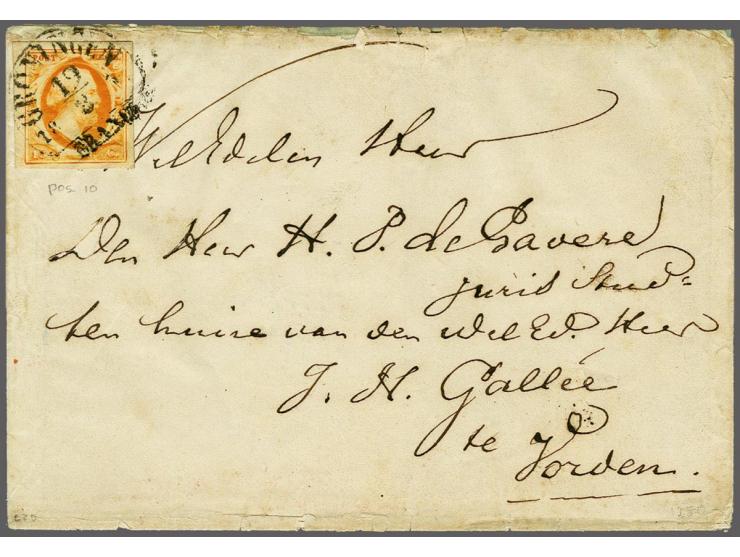 POST
GRONINGEN
12
3
FRANCO
WelEdelen Heer
pos 10
Den Heer H. P. de Gavere
jurid Stud=
ten huize van den Wel Ed. Heer
J. H. Gallée
te
Vorden.